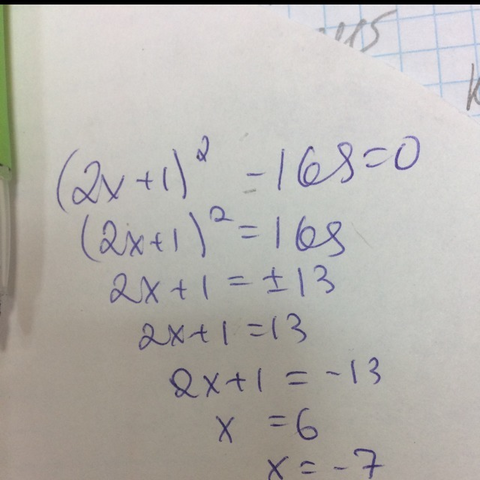 (2x+1)² -169=0
(2x+1)²=169
2x+1=±13
2x+1=13
2x+1=-13
x=6
x=-7